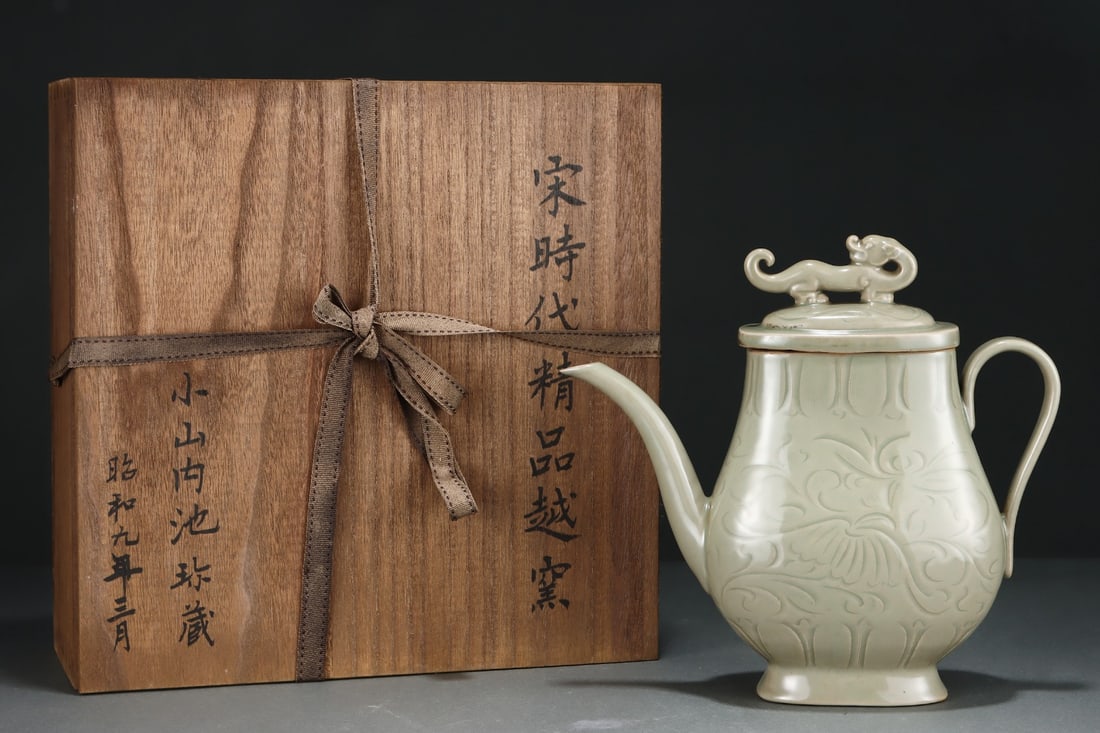 宋時代精品越窯
小山内池珎藏
昭和九年三月